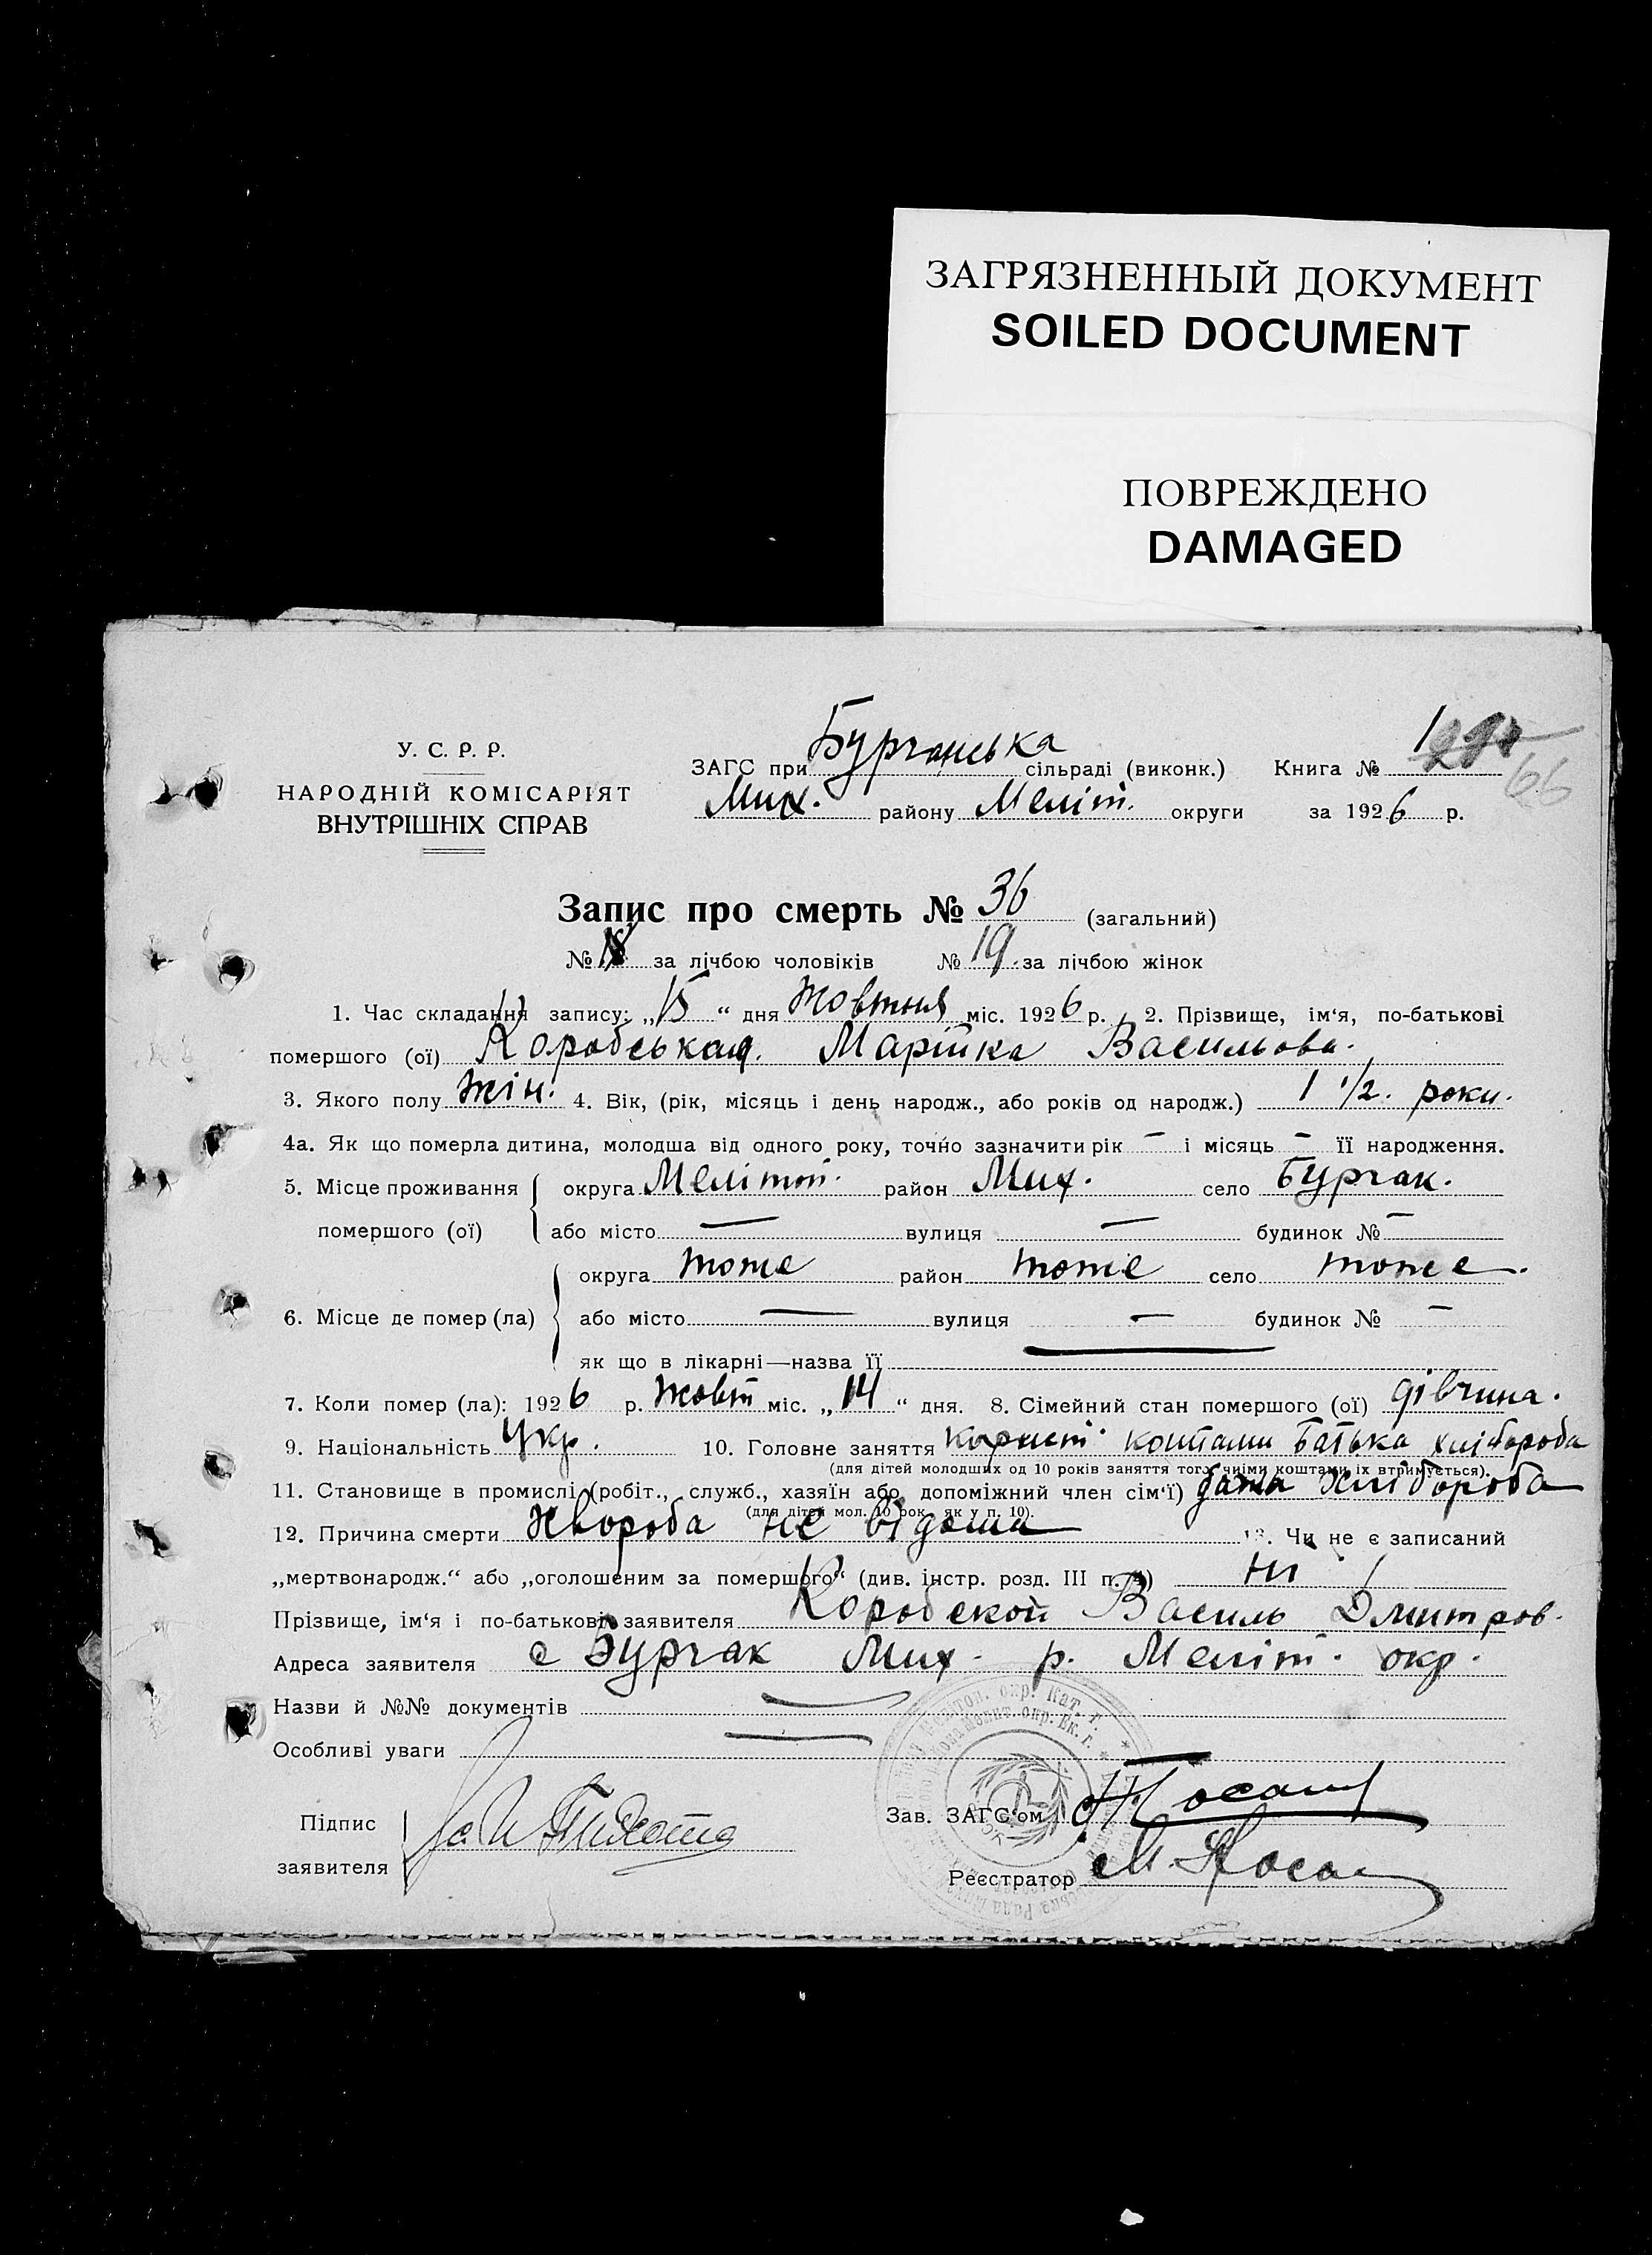 ЗАГРЯЗНЕННЫЙ ДОКУМЕНТ
SOILED DOCUMENT
ПОВРЕЖДЕНО
DAMAGED
У. С. Р. Р.
НАРОДНІЙ КОМІСАРІЯТ
ВНУТРІШНІХ СПРАВ
ЗАГС при Бурчанська сільраді (виконк.) Книга № 1
66
Мих. району Меліт. округи за 1926 р.
Запис про смерть № 36 (загальний)
№ за лічбою чоловіків № 19. за лічбою жінок
1. Час складання запису: „15“ дня Жовтня міс. 1926 р. 2. Прізвище, ім‘я, по-батькові
помершого (ої) Марійка Васильова.
3. Якого полу жін. 4. Вік, (рік, місяць і день народж., або років од народж.) 1 1/2. роки.
4а. Як що померла дитина, молодша від одного року, точно зазначити рік – і місяць – її народження.
5. Місце проживання округа Мелітоп. район Мих. село Бурчак.
помершого (ої) або місто — вулиця — будинок № —
округа тоже район тоже село тоже.
6. Місце де помер (ла) або місто — вулиця — будинок № —
як що в лікарні—назва її —
7. Коли помер (ла): 1926 р. Жовт міс. „14“ дня. 8. Сімейний стан помершого (ої) дівчина.
9. Національність Укр. 10. Головне заняття корист. коштами батька хлібороба
(для дітей молодших од 10 років заняття того, чиїми коштами їх втримується).
11. Становище в промислі (робіт., служб., хазяїн або допоміжний член сім‘ї) хлібороба
(для дітей мол. 10 рок. як у п. 10).
12. Причина смерти Хвороба не відома 13. Чи не є записаний
„мертвонародж.“ або „оголошеним за помершого“ (див. інстр. розд. III п. 4) ні
Прізвище, ім‘я і по-батькові заявителя Коробской Василь Дмитров.
Адреса заявителя с Бурчак Мих. р. Меліт. окр.
Назви й №№ документів —
Особливі уваги —
Підпис
заявителя
Зав. ЗАГС‘ом
Реєстратор М. Носа